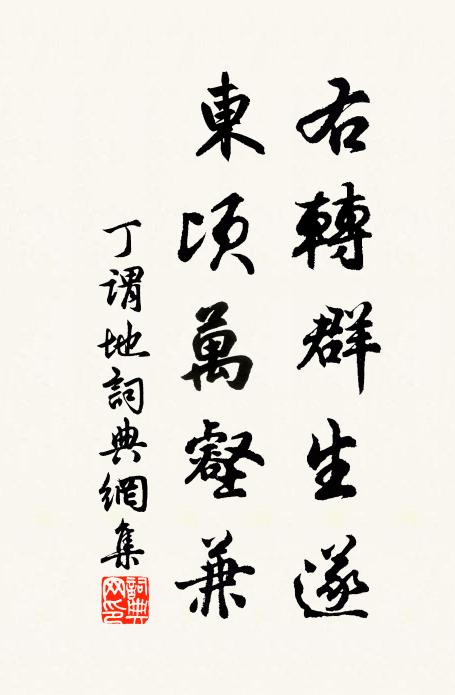 右轉群生遂
東頃萬壑兼
丁謂地詞典網集
詞典网印